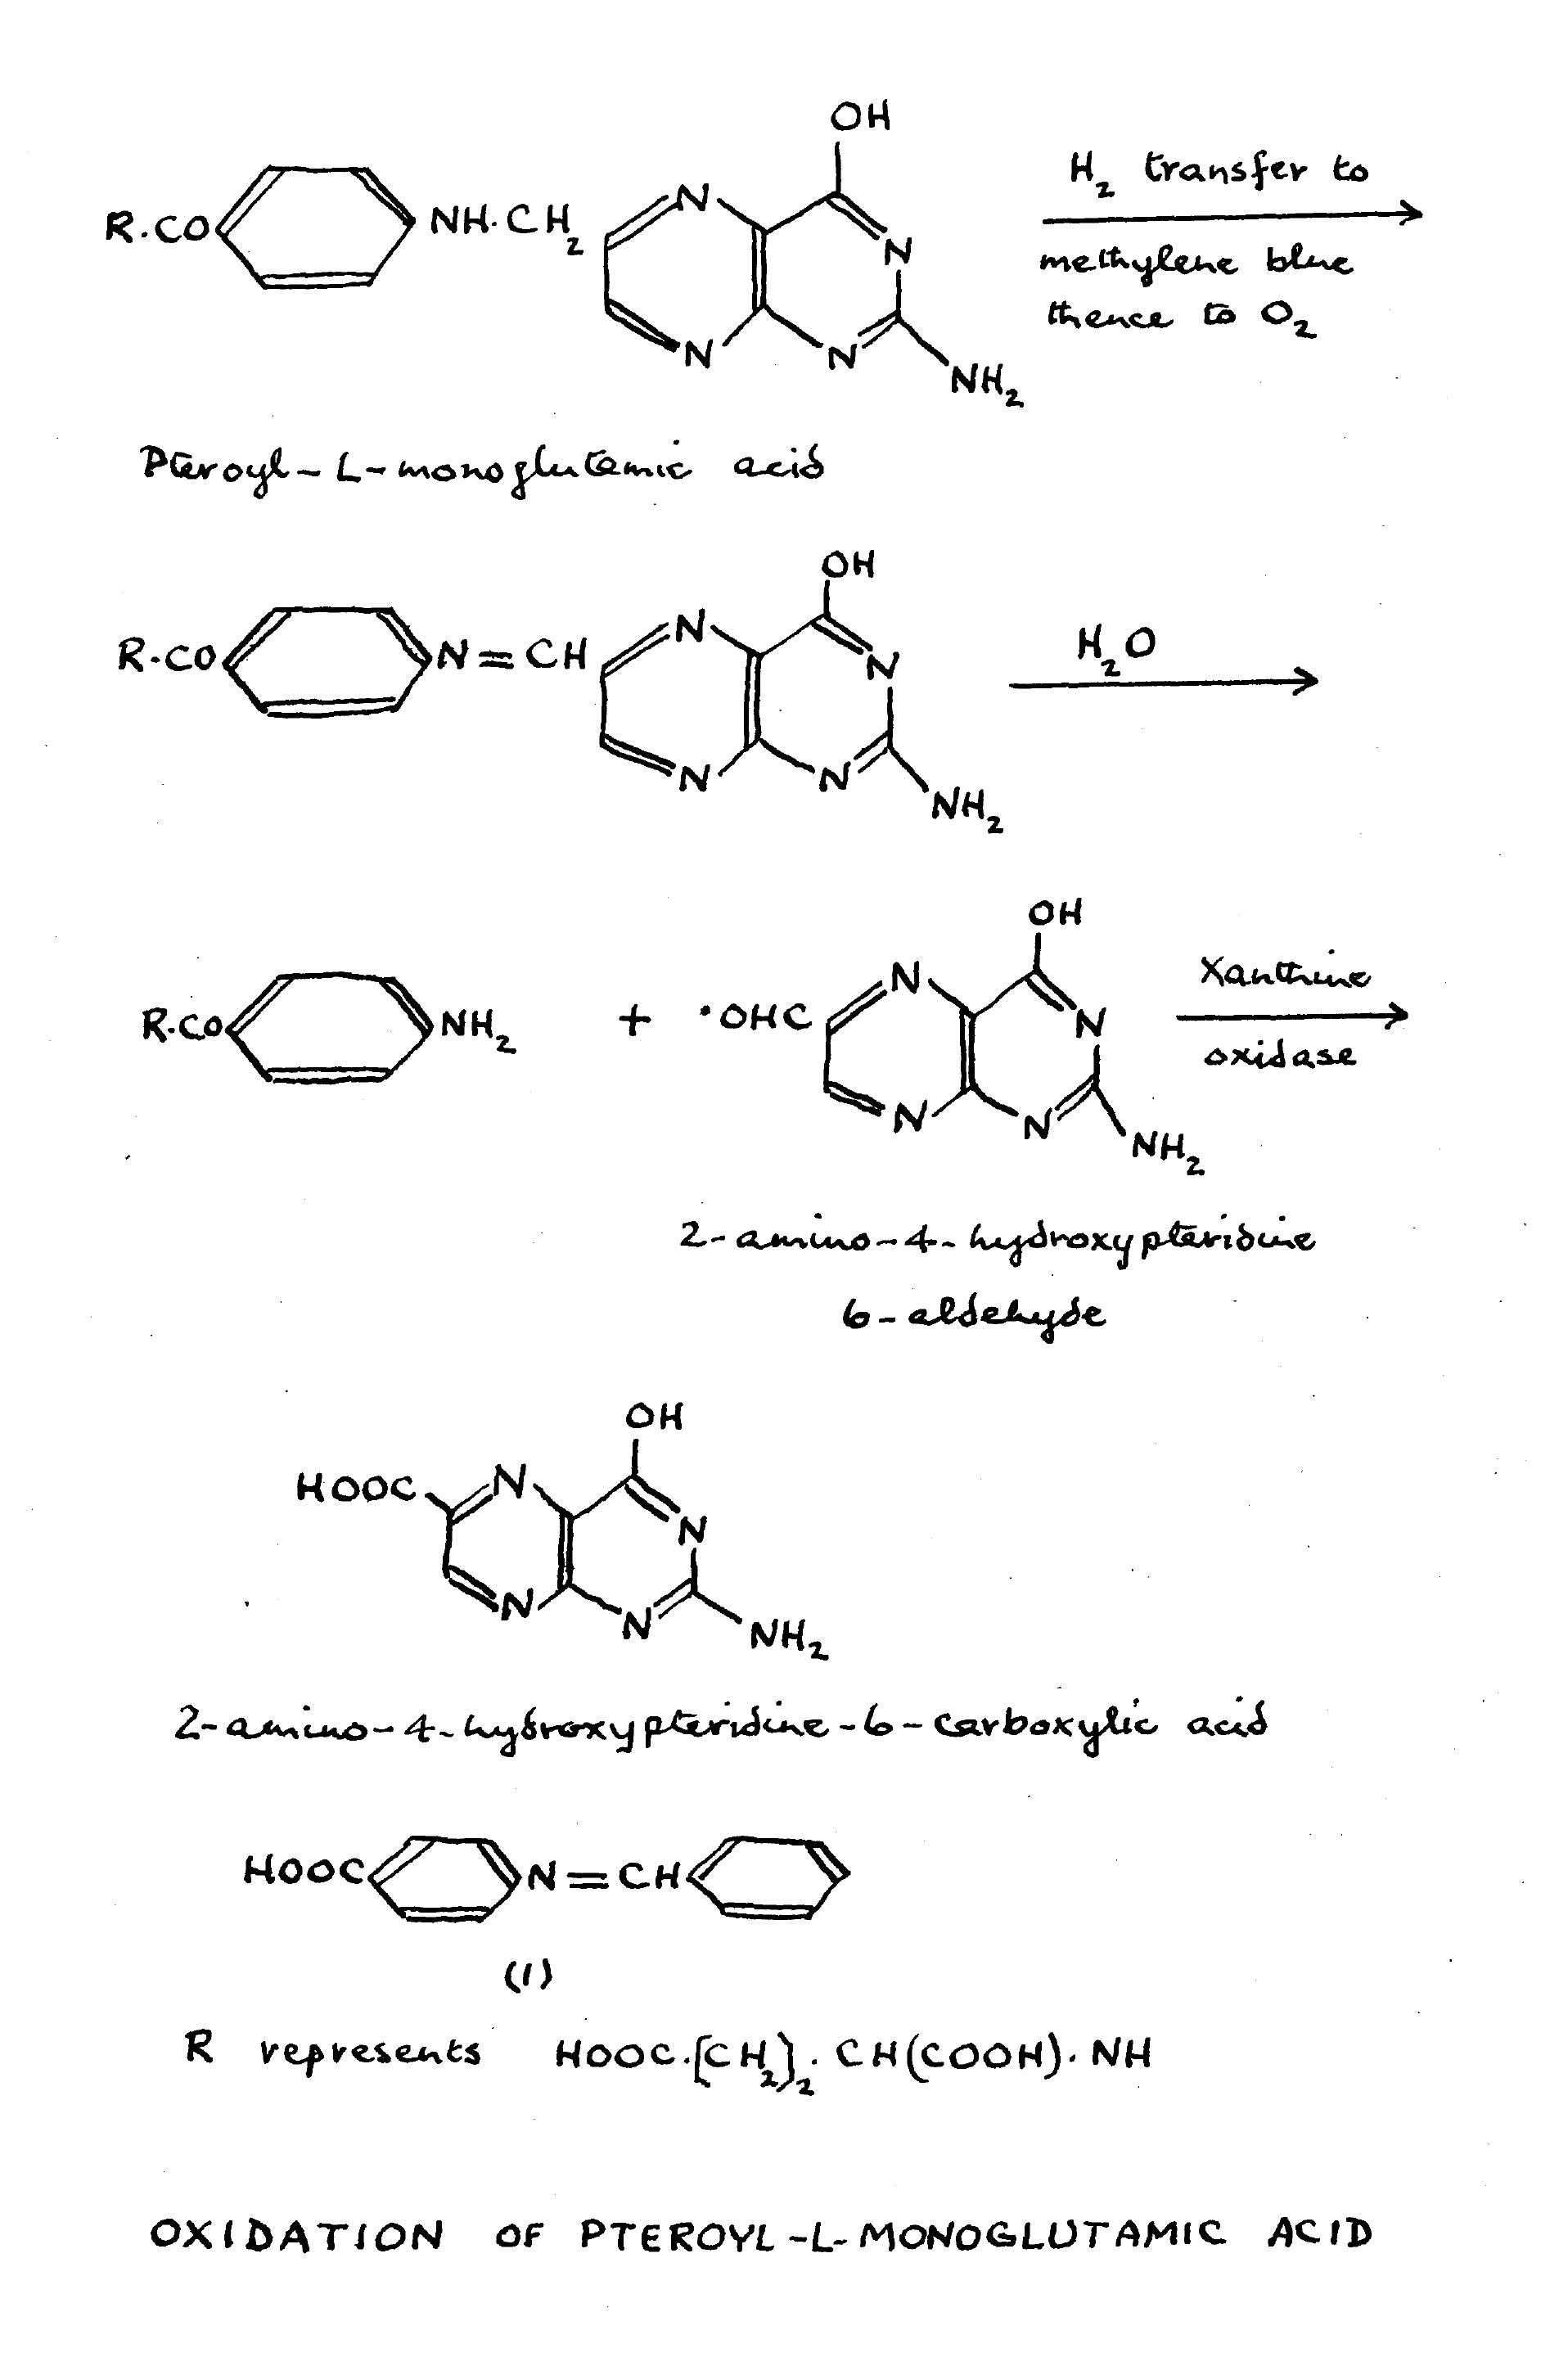 OH
R.CO NH.CH2 N N N N NH2
H2 transfer to
methylene blue
thence to O2
Pteroyl-L-monoglutamic acid
OH
R.CO N=CH N N N N NH2
H2O
OH
R.CO NH2 + ·OHC N N N N NH2
Xanthine
oxidase
2-amino-4-hydroxypteridine
6-aldehyde
OH
HOOC N N N N NH2
2-amino-4-hydroxypteridine-6-carboxylic acid
HOOC N=CH
(1)
R represents HOOC.[CH2]2.CH(COOH).NH
OXIDATION OF PTEROYL-L-MONOGLUTAMIC ACID